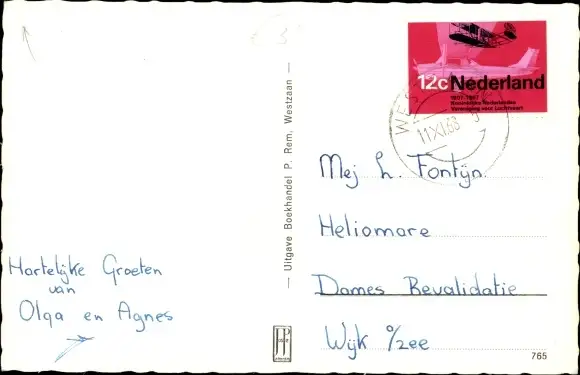 12c Nederland
1907-1967
Koninklijke Nederlandse
Vereniging voor Luchtvaart
11 XI.68
Mej L. Fontijn.
Heliomare
Dames Revalidatie
Wijk a/zee
Hartelijke Groeten
van
Olga en Agnes
— Uitgave Boekhandel P. Rem, Westzaan —
765